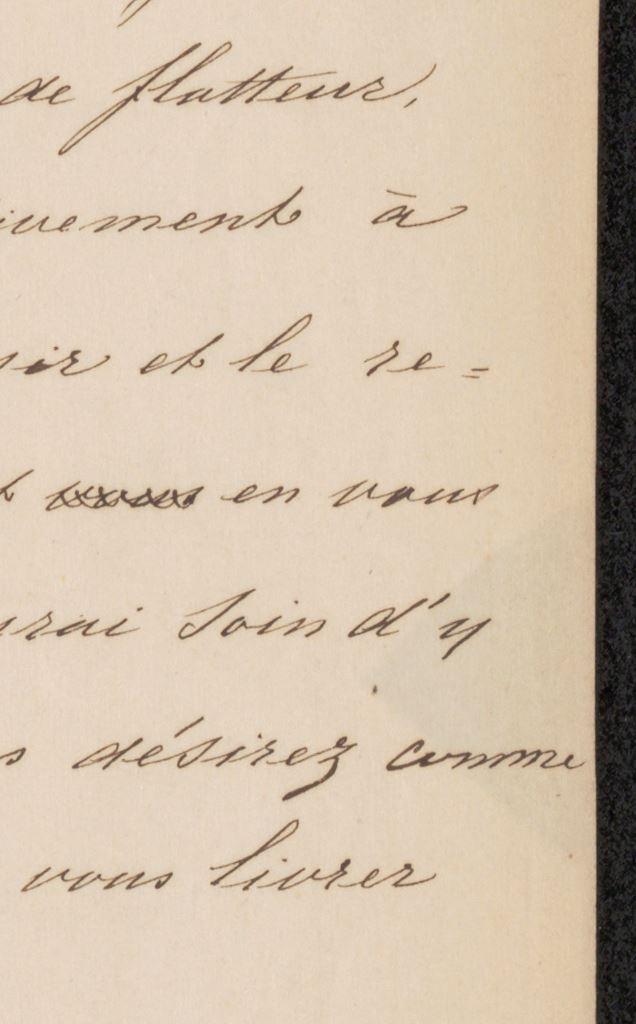 de flatteur,
ivement à
sir et le re=
en vous
urai soin d'y
s désirez comme
vous livrer